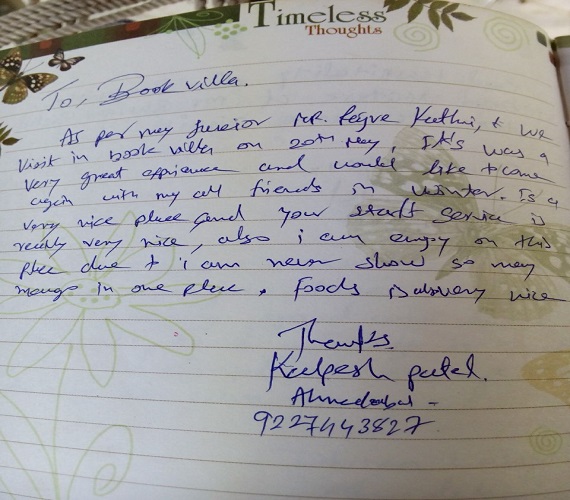 Timeless
Thoughts
To, Book villa.
As per my Junior MR. Kathri, & we
visit in book villa on 20th May, It's was a
very great expirience and would like to come
again with my all friends in winter. Is a
very nice place and your staff service is
really very nice, also i am enjoy on this
place due to i am never show so many
mango in one place, foods is also very nice
Thanks
Kalpesh patel.
Ahmedabad -
9227443827